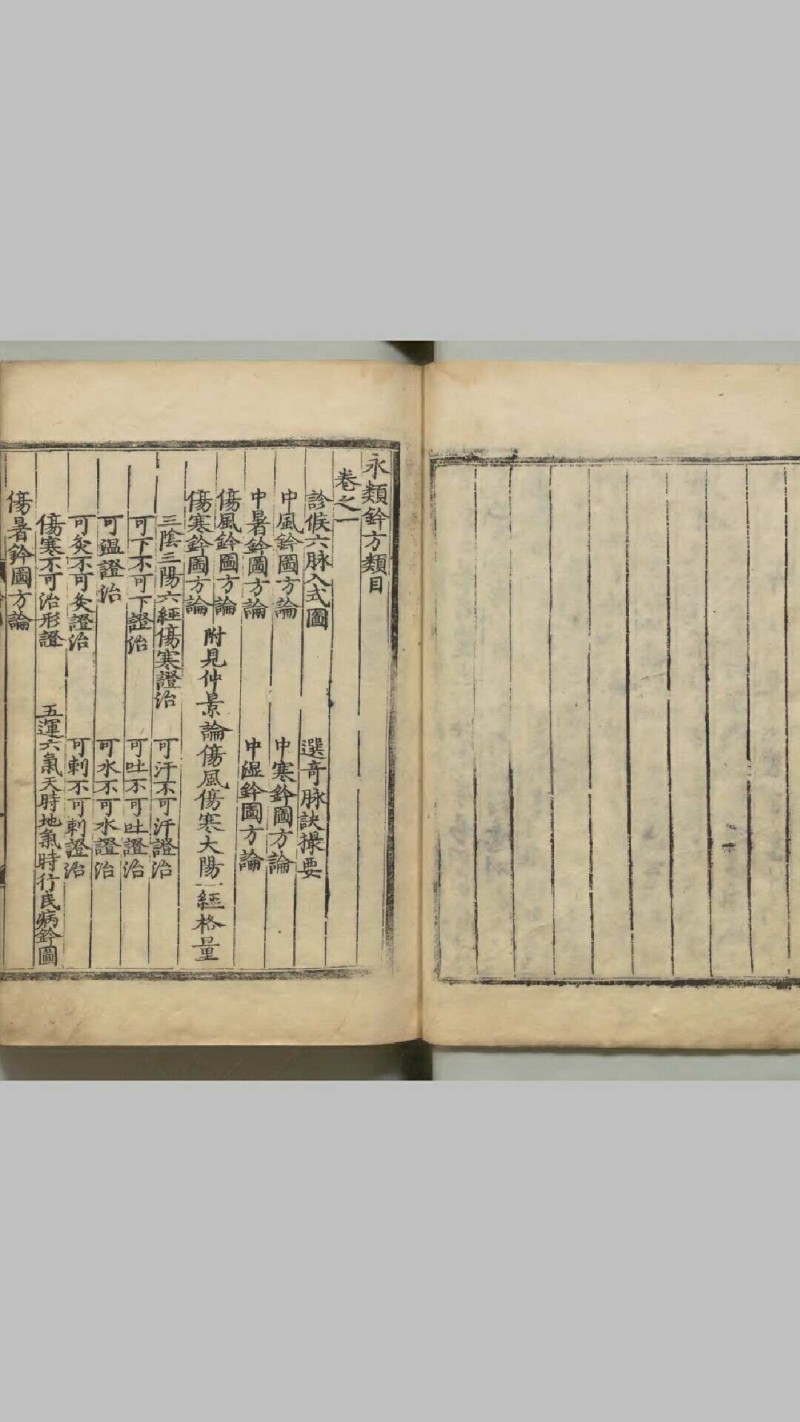 永類鈐方類目
卷之一
診候六脉入式圖　選奇脉訣撮要
中風鈐圖方論　中寒鈐圖方論
中暑鈐圖方論　中濕鈐圖方論
傷風鈐圖方論
附見仲景論傷風傷寒大陽一經格量
傷寒鈐圖方論
三陰三陽六經傷寒證治　可汗不可汗證治
可下不可下證治　可吐不可吐證治
可温證治　可水不可水證治
可灸不可灸證治　可刺不可刺證治
傷寒不可治形證　五運六氣天時地氣時行民病鈐圖
傷暑鈐圖方論